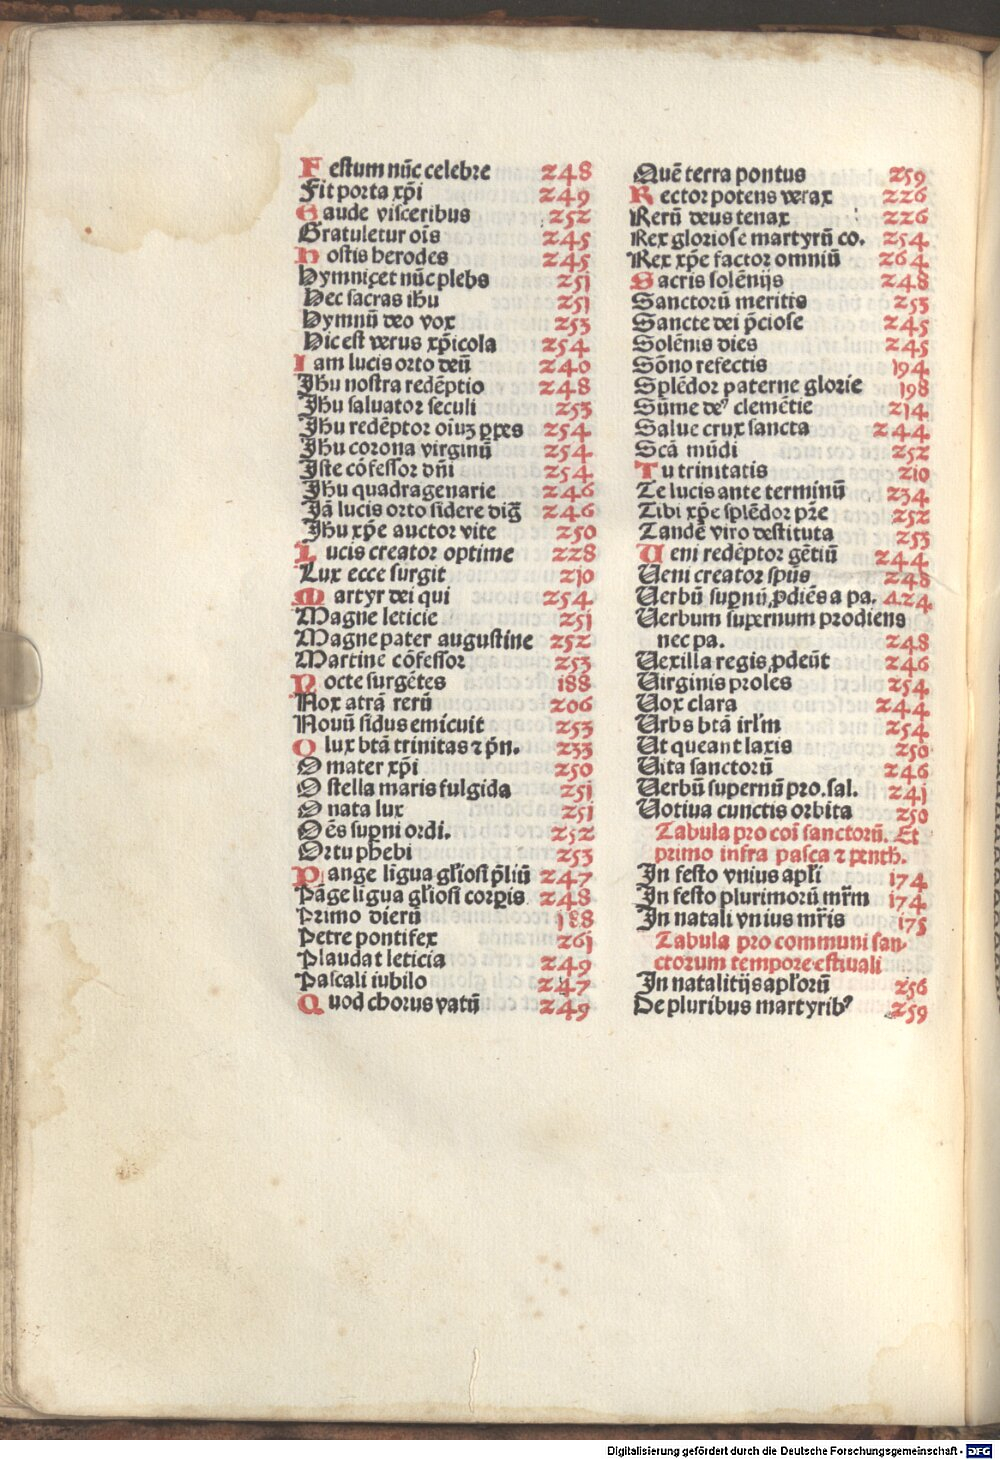 Festum nūc celebre 248
Fit porta xp̄i 249
Gaude visceribus 252
Gratuletur oīs 245
Hostis herodes 245
Hymnizet nūc plebs 251
Hec sacras ihū 251
Hymnū deo vox 253
Hic est verus xp̄icola 254
Iam lucis orto deū 240
Jhū nostra redēptio 248
Jhū saluator seculi 253
Jhū redēptor oīuꝫ ꝑpes 254
Jhū corona virginū 254
Jste cōfessor dn̄i 254
Jhū quadragenarie 246
Jā lucis orto sidere dig 246
Jhū xp̄e auctor vite 250
Lucis creator optime 228
Lux ecce surgit 210
Martyr dei qui 254
Magne leticie 251
Magne pater augustine 252
Martine cōfessor 253
Nocte surgētes 188
Nox atra rerū 206
Nouū sidus emicuit 253
O lux btā trinitas ⁊ pn̄. 233
O mater xp̄i 250
O stella maris fulgida 251
O nata lux 251
Oēs suꝑni ordi. 252
Ortu phebi 253
Pange līgua gl̄iosi p̄liū 247
Pāge ligua gl̄iosi corꝑis 248
Primo dierū 188
Petre pontifex 261
Plaudat leticia 249
Pascali iubilo 247
Quod chorus vatū 249
Quē terra pontus 259
Rector potens verax 226
Rerū deus tenax 226
Rex gloriose martyrū co. 254
Rex xp̄e factor omniū 264
Sacris solēnijs 248
Sanctorū meritis 253
Sancte dei p̄ciose 245
Solēnis dies 245
Sōno refectis 194
Splēdor paterne glorie 198
Sūme deꝰ clemētie 214
Salue crux sancta 244
Scā mūdi 252
Tu trinitatis 210
Te lucis ante terminū 234
Tibi xp̄e splēdor pr̄e 252
Tandē viro destituta 253
Ueni redēptor gētiū 244
Ueni creator spūs 248
Uerbū suꝑnū ꝓdiēs a pa. 424
Uerbum supernum prodiens
nec pa. 248
Uexilla regis ꝓdeūt 246
Uirginis proles 254
Uox clara 244
Urbs btā irl̄m 254
Ut queant laxis 250
Uita sanctorū 246
Uerbū supernū pro.sal. 241
Uotiua cunctis orbita 250
Tabula pro coī sanctorū. Et
primo infra pasca ⁊ penth.
In festo vnius apl̄i 174
In festo plurimorū mr̄m 174
In natali vnius mr̄is 175
Tabula pro communi san-
ctorum tempore estiuali
In natalitijs apl̄orū 256
De pluribus martyribꝰ 259
Digitalisierung gefördert durch die Deutsche Forschungsgemeinschaft - DFG